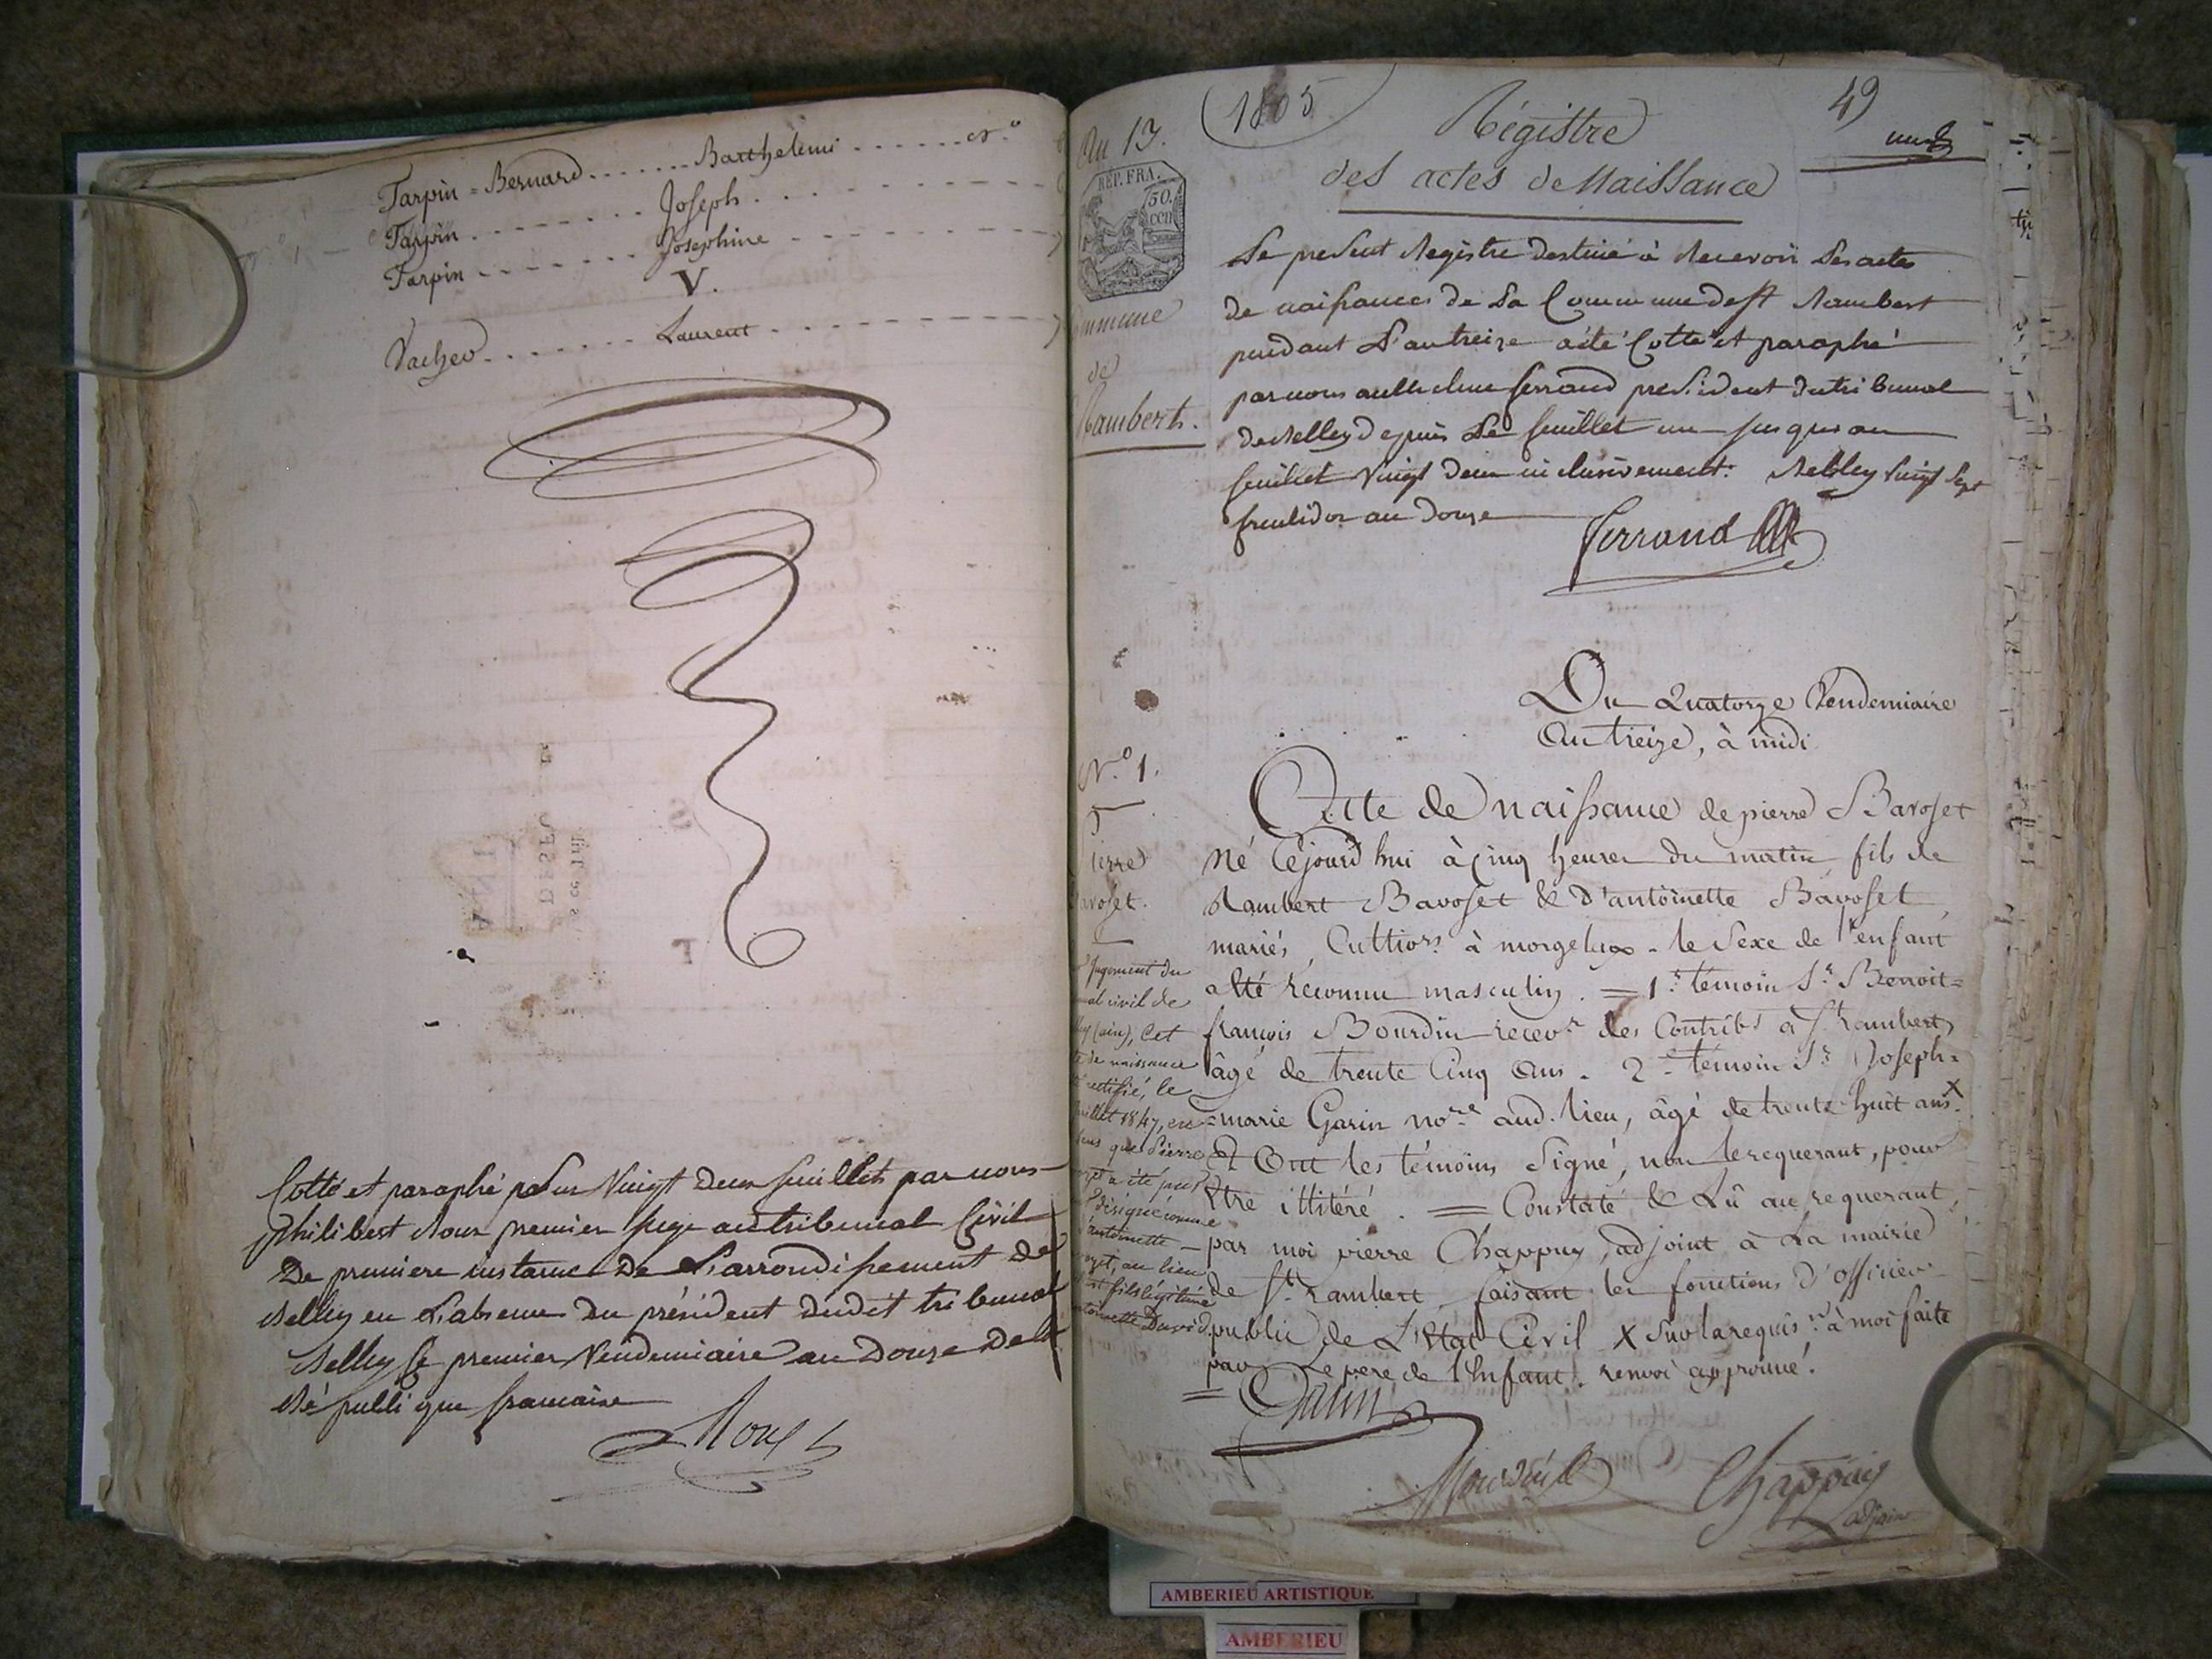 Tarpin = Bernard ....... Barthelemi ...... N.o
Tarpin ....... Joseph
Tarpin ....... Josephine
V.
Vacher ....... Laurent
Cotté et paraphé pour Vingt deux feuillets par nous
philibert Roux premier juge au tribunal Civil
De premiere instance De L'arrondissement De
Belley en L'absence Du président dudit tribunal
Belley le premier Vendemiaire an Douze De la
République francaise
Roux
An 13.
1805
49
Régistre
des actes de Naissance
un
REP. FRA.
50.
CEN
Commune
de
Rambert.
Le present Registre destiné à Recevoir Les actes
de naissances de La Commune de St Rambert
pendant L'an treize a été Cotté et paraphé
par nous anthelme ferrand président du tribunal
de Belley depuis Le feuillet un jusques au
feuillet vingt deux inclusivement. Belley vingt sept
fructidor an douze
Ferrand
Du Quatorze Vendemiaire
An treize, à midi
N.o 1.
Pierre
Bavoset.
Acte de naissance de pierre Bavoset
Né Cejourd'hui à Cinq heures du matin fils de
Rambert Bavoset & d'antoinette Bavoset
mariés, Culttiors à morgelux - le Sexe de l'enfant
a été Reconnu masculin. = 1.r témoin Sr. Benoit=
françois Bourdin recevr des Contribs à St. rambert
âgé de trente Cinq Ans. 2e témoin Sr. Joseph=
=marie Garin nore aud. lieu, âgé de trente huit ans. X
Et Ont les témoins Signé, non le requerant, pour
Etre illitéré. = Constaté & Lû au requerant,
par moi pierre Chappuy, adjoint à La mairie
de St. rambert, faisant les fonctions d'officier
public de L'Etat Civil X Sur la requison à moi faite
par Le pere de l'Enfant. renvoi approuvé.
jugement du
civil de
(ain), Cet
de naissance
rectifié, le
juillet 1847, en
sens que Pierre
a été
désigné comme
d'antoinette
au lieu
fils légitime
antoinette David.
= Garin
Bourdin
Chappuy
adjoint
AMBERIEU ARTISTIQUE
AMBERIEU